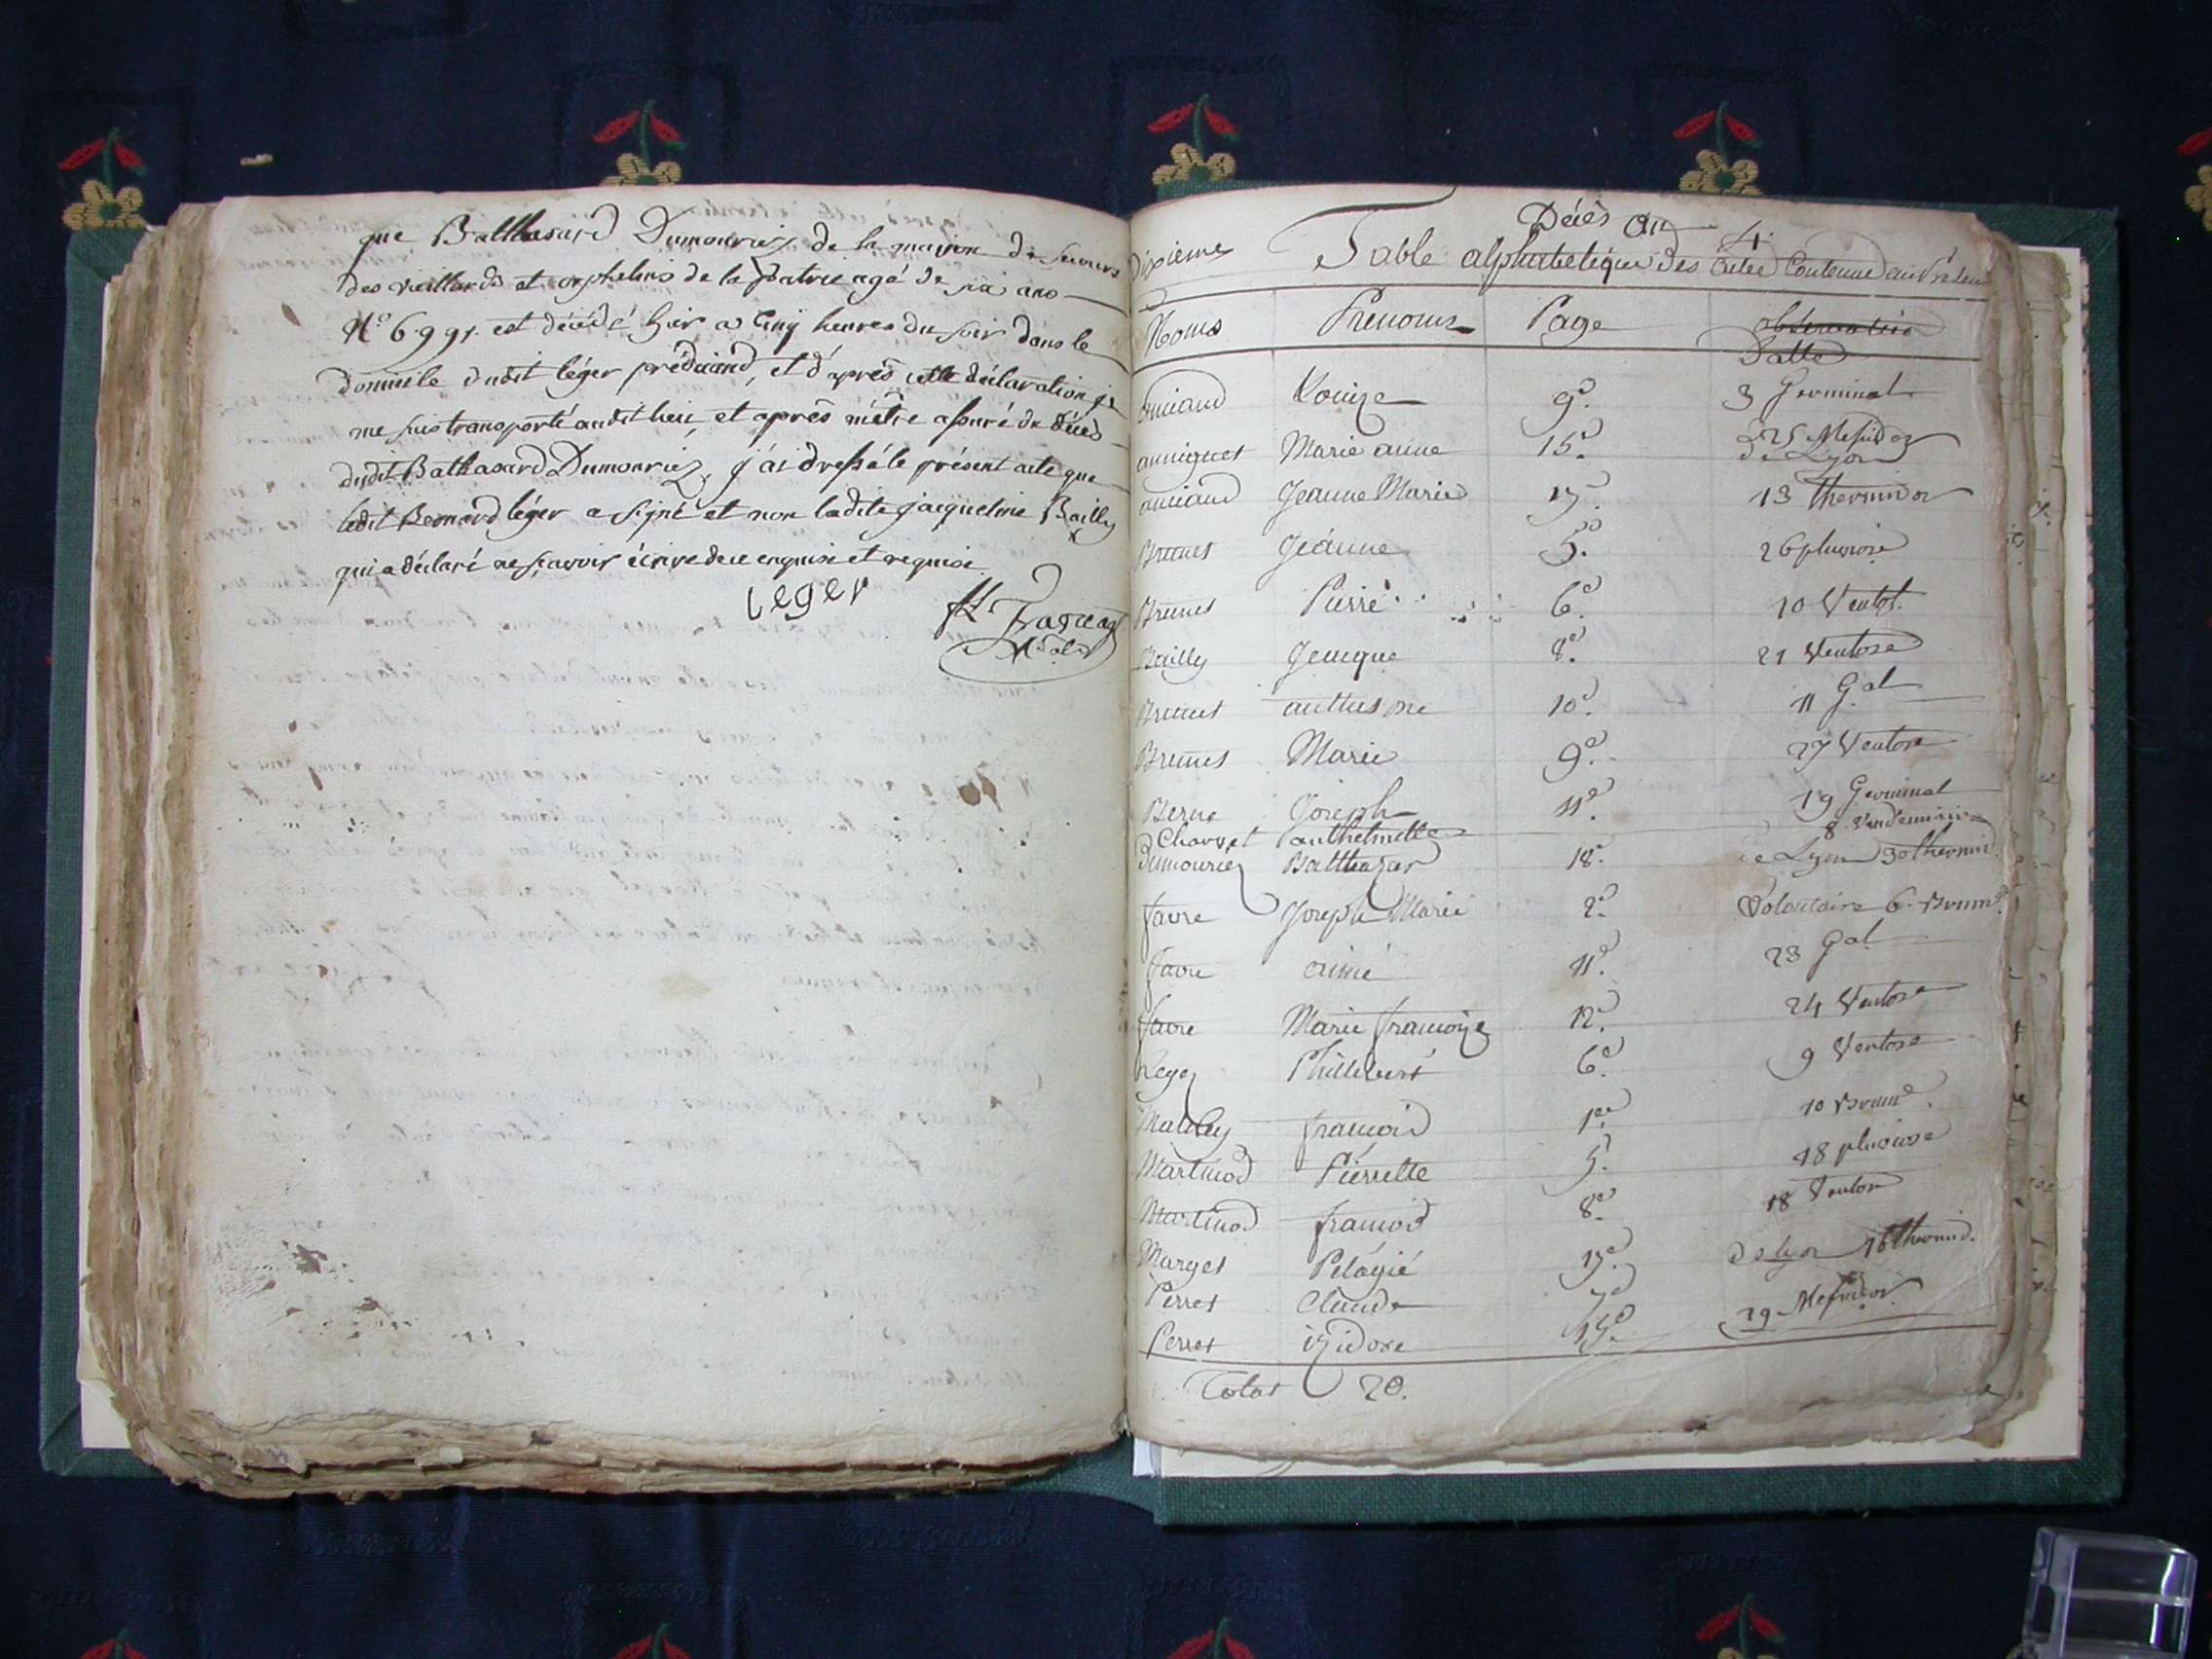 que Balthasard Dumouriez de la maison de secours
des vieillards et orphelins de la patrie agé de six ans
N.º 6.991. est décédé hier a cinq heures du soir dans le
domicile dudit léger prédiand, et d'aprés cette déclaration je
me suis transporté audit lieu, et aprés m'étre assuré du décès
dudit Balthasard Dumouriez, j'ai dressé le présent acte que
ledit Bernard léger a signé et non ladite jacqueline Bailly
qui a déclaré ne sçavoir écrire de ce enquise et requise
leger
Décès an 4.
dixieme Table alphabétique des actes Contenue au
Noms Prenoms Page observation
Datte
Louize 9.e 3 Germinal
Marie anne 15.e 25 Messidor
de Lyon
anciand Jeanne Marie 17. 13 thermidor
Brunet Jeánne 5.e 26 pluviose
Brunet Pierre 6.e 10 Ventos.
Bailly Jacque 8.e 21 Ventose
Brunet anthesme 10.e 11 G.al
Brunet Marie 9.e 27 Ventose
Berne Joseph 11.e 19 Germinal
Charvet anthelmette 8 Vendemiaire
dumouriez Balthazar 18.e de Lyon 30 thermid.
favre Joseph Marie 2.e Volontaire 6. Brum.e
favre aimé 11.e 23 G.al
favre Marie francoize 12.e 24 Ventose
Philibert 6.e 9 Ventose
francois 1.er 10 Brum.e
Martinod Pierrette 5. 18 pluviose
Martinod francois 8.e 18 Ventose
Marget Pélagié 17.e de lyon 16 thermid.
Perret Claude 7.e
Perret izidore 15.e 29 Messidor
Total 20.